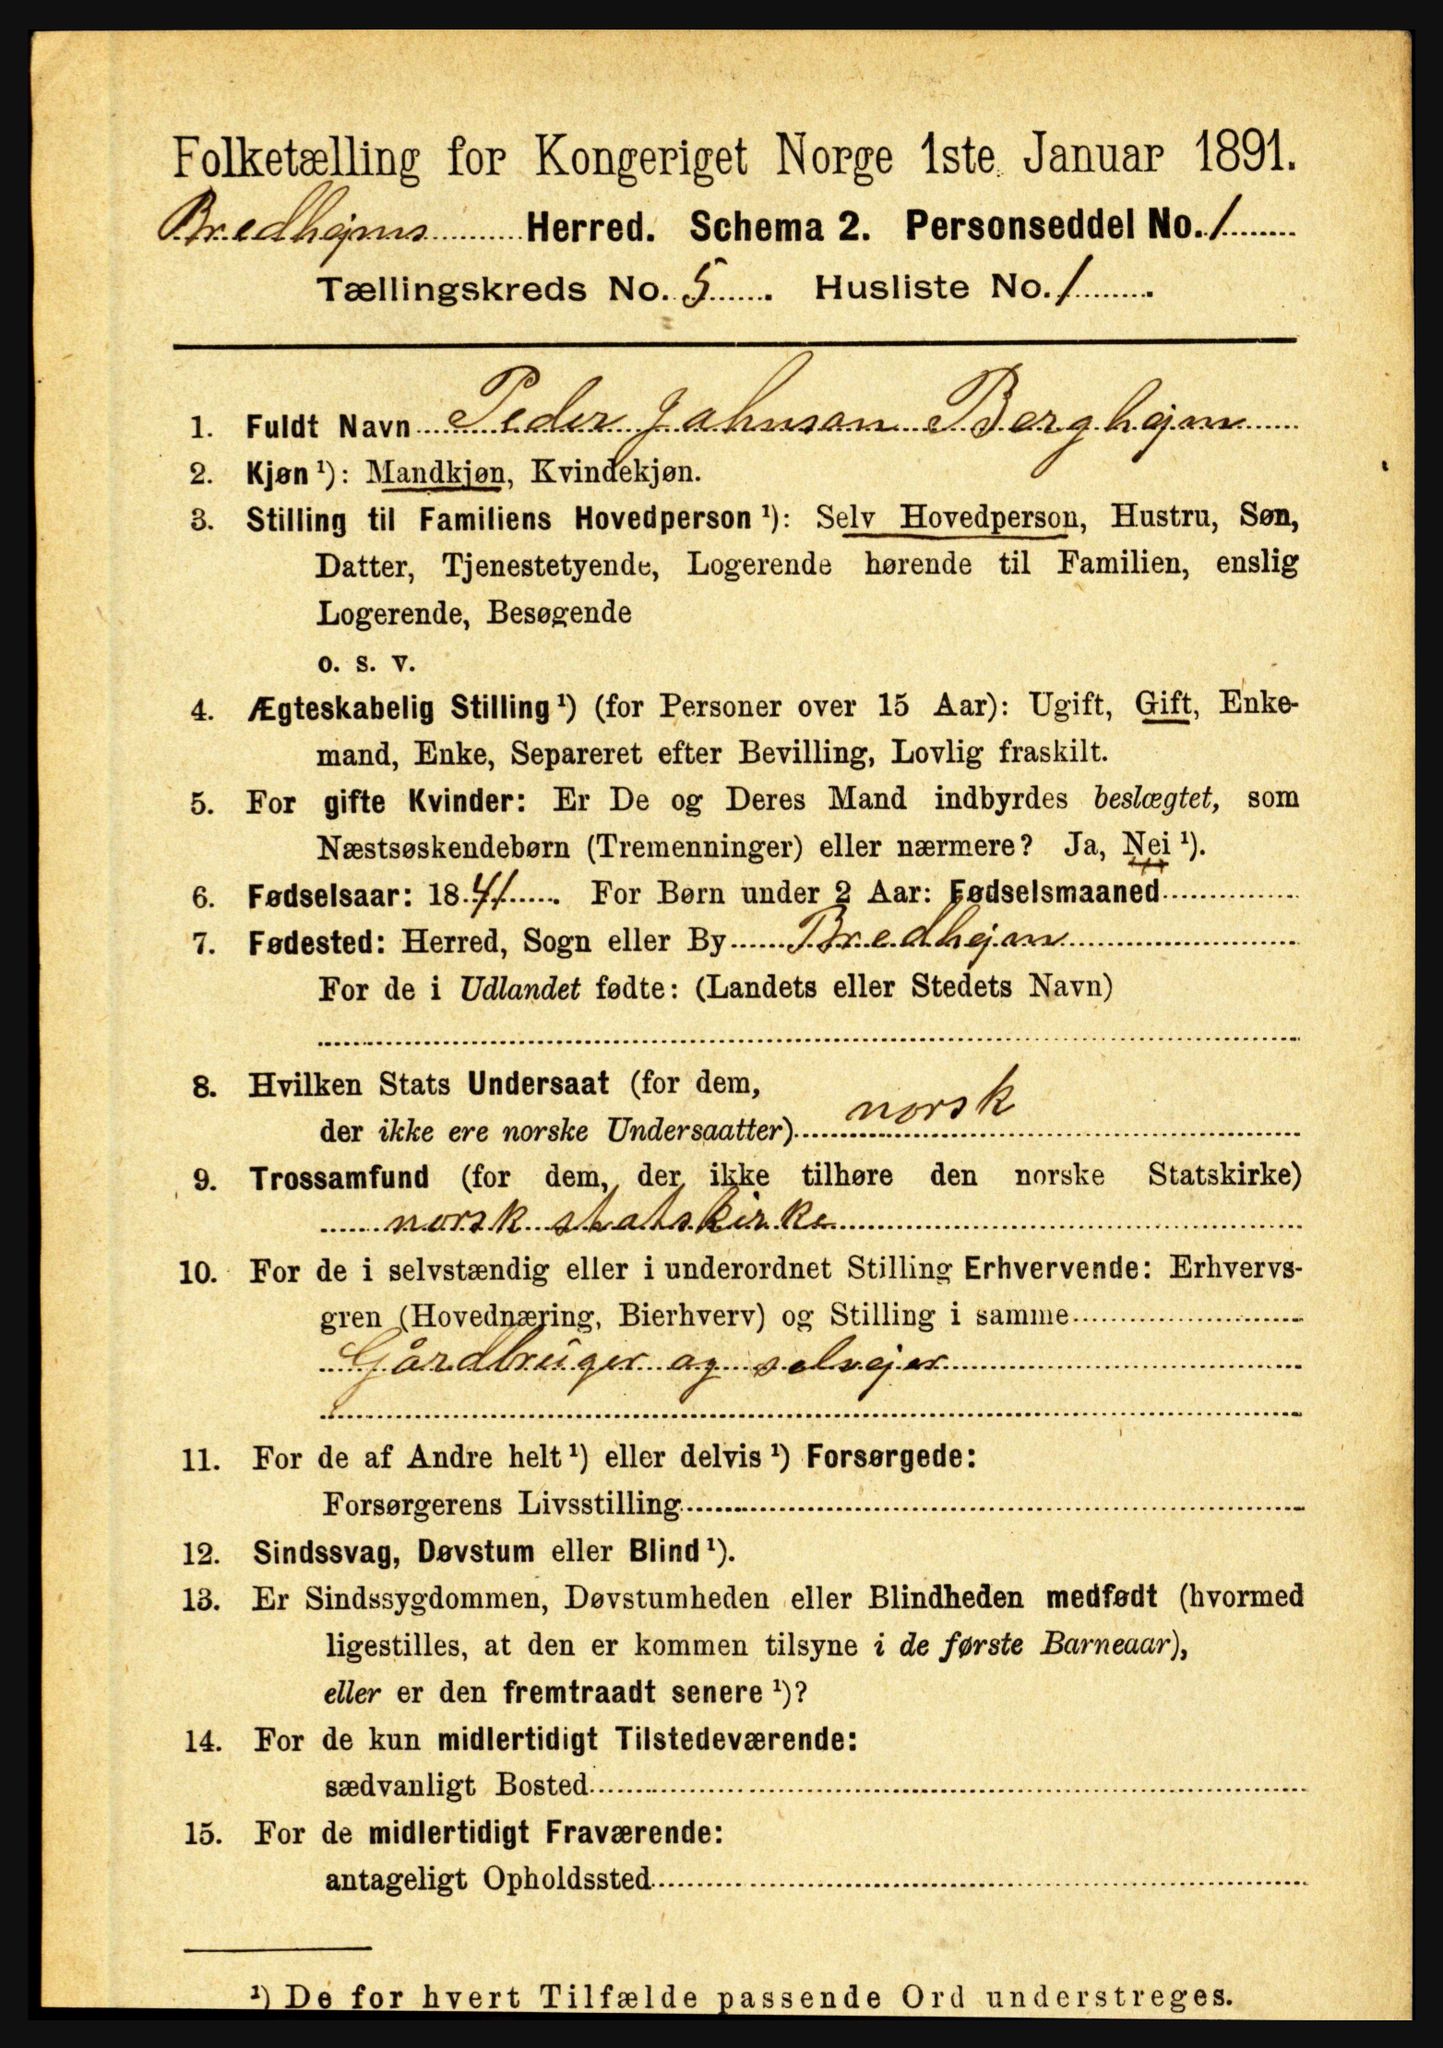 Folketælling for Kongeriget Norge 1ste Januar 1891.
Bredhejms Herred. Schema 2. Personseddel No. 1
Tællingskreds No. 5. Husliste No. 1.
1. Fuldt Navn Peder Johnson Berghejm
2. Kjøn ¹): Mandkjøn, Kvindekjøn.
3. Stilling til Familiens Hovedperson ¹): Selv Hovedperson, Hustru, Søn,
Datter, Tjenestetyende, Logerende hørende til Familien, enslig
Logerende, Besøgende
o. s. v.
4. Ægteskabelig Stilling ¹) (for Personer over 15 Aar): Ugift, Gift, Enke-
mand, Enke, Separeret efter Bevilling, Lovlig fraskilt.
5. For gifte Kvinder: Er De og Deres Mand indbyrdes beslægtet, som
Næstsøskendebørn (Tremenninger) eller nærmere? Ja, Nei ¹).
6. Fødselsaar: 1841. For Børn under 2 Aar: Fødselsmaaned
7. Fødested: Herred, Sogn eller By Bredhejm
For de i Udlandet fødte: (Landets eller Stedets Navn)
8. Hvilken Stats Undersaat (for dem,
der ikke ere norske Undersaatter) norsk
9. Trossamfund (for dem, der ikke tilhøre den norske Statskirke)
norsk statskirke
10. For de i selvstændig eller i underordnet Stilling Erhvervende: Erhvervs-
gren (Hovednæring, Bierhverv) og Stilling i samme
Gårdbruger og selvejer
11. For de af Andre helt ¹) eller delvis ¹) Forsørgede:
Forsørgerens Livsstilling
12. Sindssvag, Døvstum eller Blind ¹).
13. Er Sindssygdommen, Døvstumheden eller Blindheden medfødt (hvormed
ligestilles, at den er kommen tilsyne i de første Barneaar),
eller er den fremtraadt senere ¹)?
14. For de kun midlertidigt Tilstedeværende:
sædvanligt Bosted
15. For de midlertidigt Fraværende:
antageligt Opholdssted
¹) De for hvert Tilfælde passende Ord understreges.